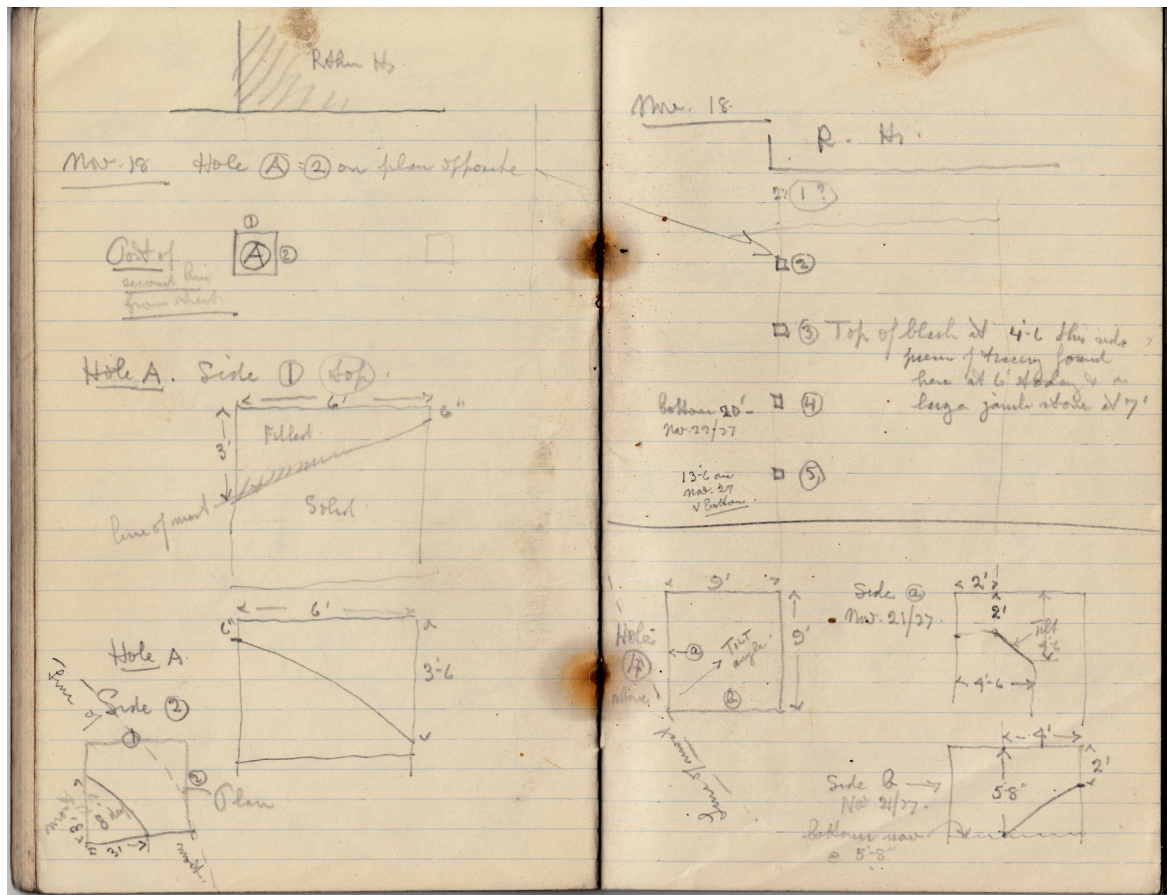 Hs.
Nov. 18 Hole Ⓐ = ② on plan opposite
①
Ⓐ ②
Part of
second line
from street
Hole A. Side ① (top).
6'
6"
3'
Filled.
Solid.
line of moat
6'
6"
3'-6
Hole A.
Side ②
line of
①
②
Plan
3'
moat.
Nov. 18.
R. Hs.
2? (1?)
②
③ Top of black at 4'-6 this side
piece of tracery found
here at 6' today & a
large jamb stone at 7'
④
bottom 20'-
Nov. 29/27
⑤
13'-6 on
Nov. 29
bottom.
Hole
④
above
9'
9'
ⓐ
Tilt
angle.
ⓑ
Line of moat
Side ⓐ
Nov. 21/27.
2'
2'
Tilt
4'-6
4'-6
Side b
Nov 21/27.
4'
2'
5'8"
bottom now
@ 5'-8"